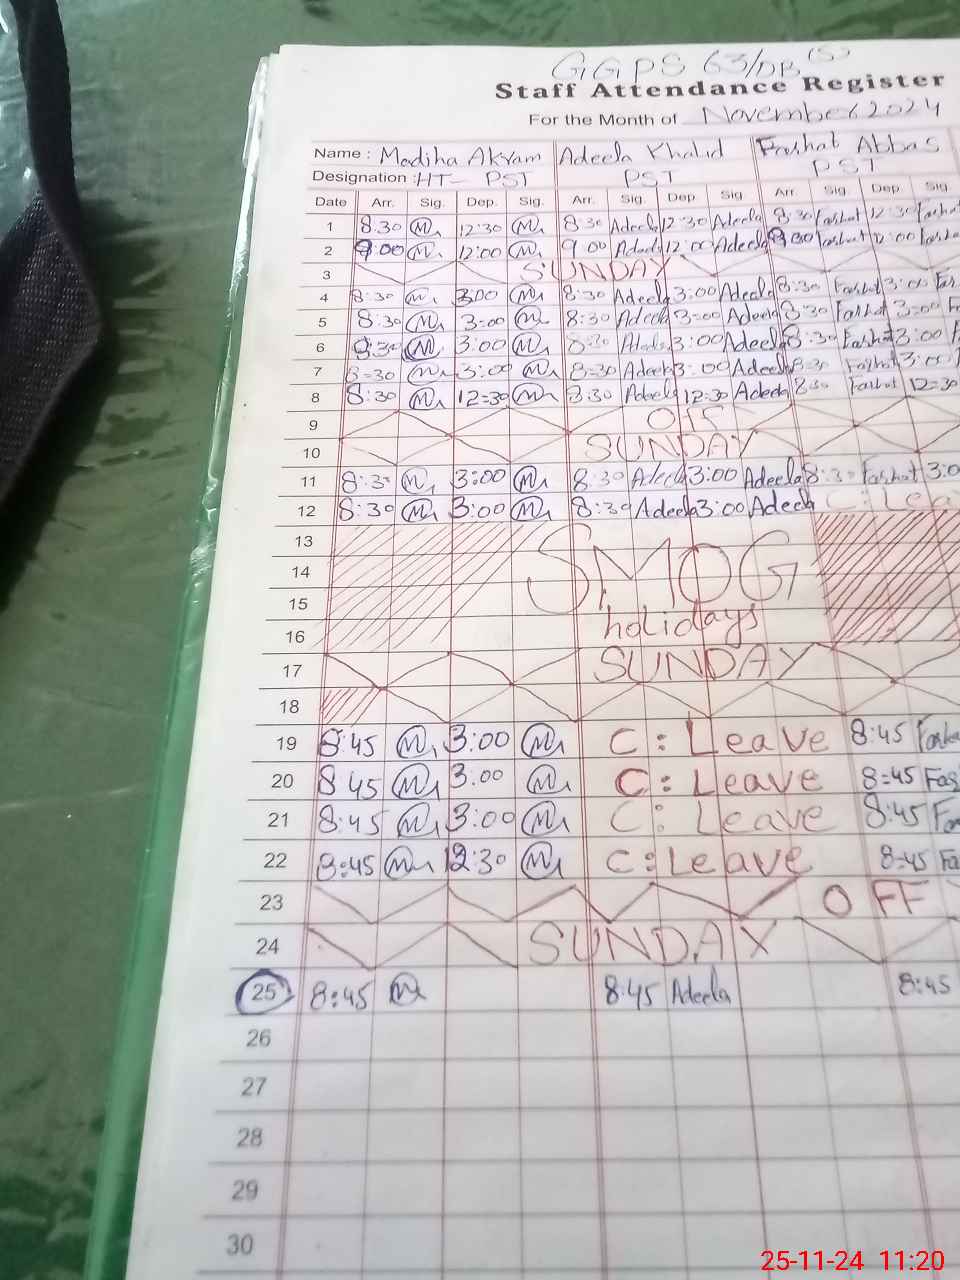 GGPS 63/DB (S)
Staff Attendance Register
For the Month of November 2024
Name : Madiha Akram Adeela Khalid Farhat Abbas
Designation : HT- PST PST PST
Date Arr. Sig. Dep. Sig. Arr. Sig. Dep Sig Arr. Sig. Dep Sig.
1 8:30 12:30 8:30 Adeela 12:30 Adeela 8:30 Farhat 12:30 Farhat
2 9:00 12:00 9:00 Adeela 12:00 Adeela Farhat 12:00 Farhat
3 SUNDAY
4 8:30 3:00 8:30 Adeela 3:00 Adeela 8:30 Farhat 3:00 Far
5 8:30 3=00 8:30 Adeela 3=00 Adeela 8:30 Farhat 3=00 F
6 8:30 3:00 8:30 Adeela 3:00 Adeela 8:30 Farhat 3:00 F
7 8=30 3:00 8=30 Adeela 3:00 Adeela 8=30 Farhat 3:00
8 8:30 12=30 8:30 Adeela 12:30 Adeela 8:30 Farhat 12=30
9
10 SUNDAY
11 8:30 3:00 8:30 Adeela 3:00 Adeela 8:30 Farhat 3:0
12 8:30 3:00 8:30 Adeela 3:00 Adeela C: Lea
13
14 SMOG
15
16 holidays
17 SUNDAY
18
19 8:45 3:00 C: Leave 8:45 Farha
20 8:45 3:00 C: Leave 8=45 Fas
21 8:45 3:00 C: Leave 8:45 Fa
22 8:45 12:30 C: Leave 8=45 Fa
23 OFF
24 SUNDAY
25 8:45 8:45 Adeela 8:45
26
27
28
29
30
25-11-24 11:20